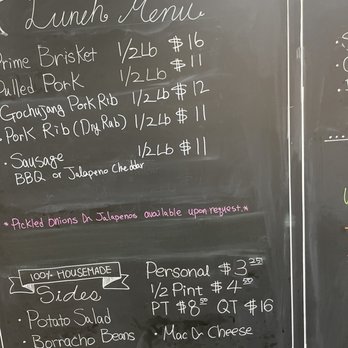 Lunch Menu
Prime Brisket 1/2Lb $16
Pulled Pork 1/2Lb $11
Gochujang Pork Rib 1/2Lb $12
• Pork Rib (Dry Rub) 1/2Lb $11
• Sausage 1/2Lb $11
BBQ or Jalapeno Cheddar
*Pickled Onions On Jalapenos available upon request.*
100% HOUSEMADE
Sides
Personal $3.25
1/2 Pint $4.50
PT $8.50 QT $16
• Potato Salad
• Borracho Beans
• Mac & Cheese